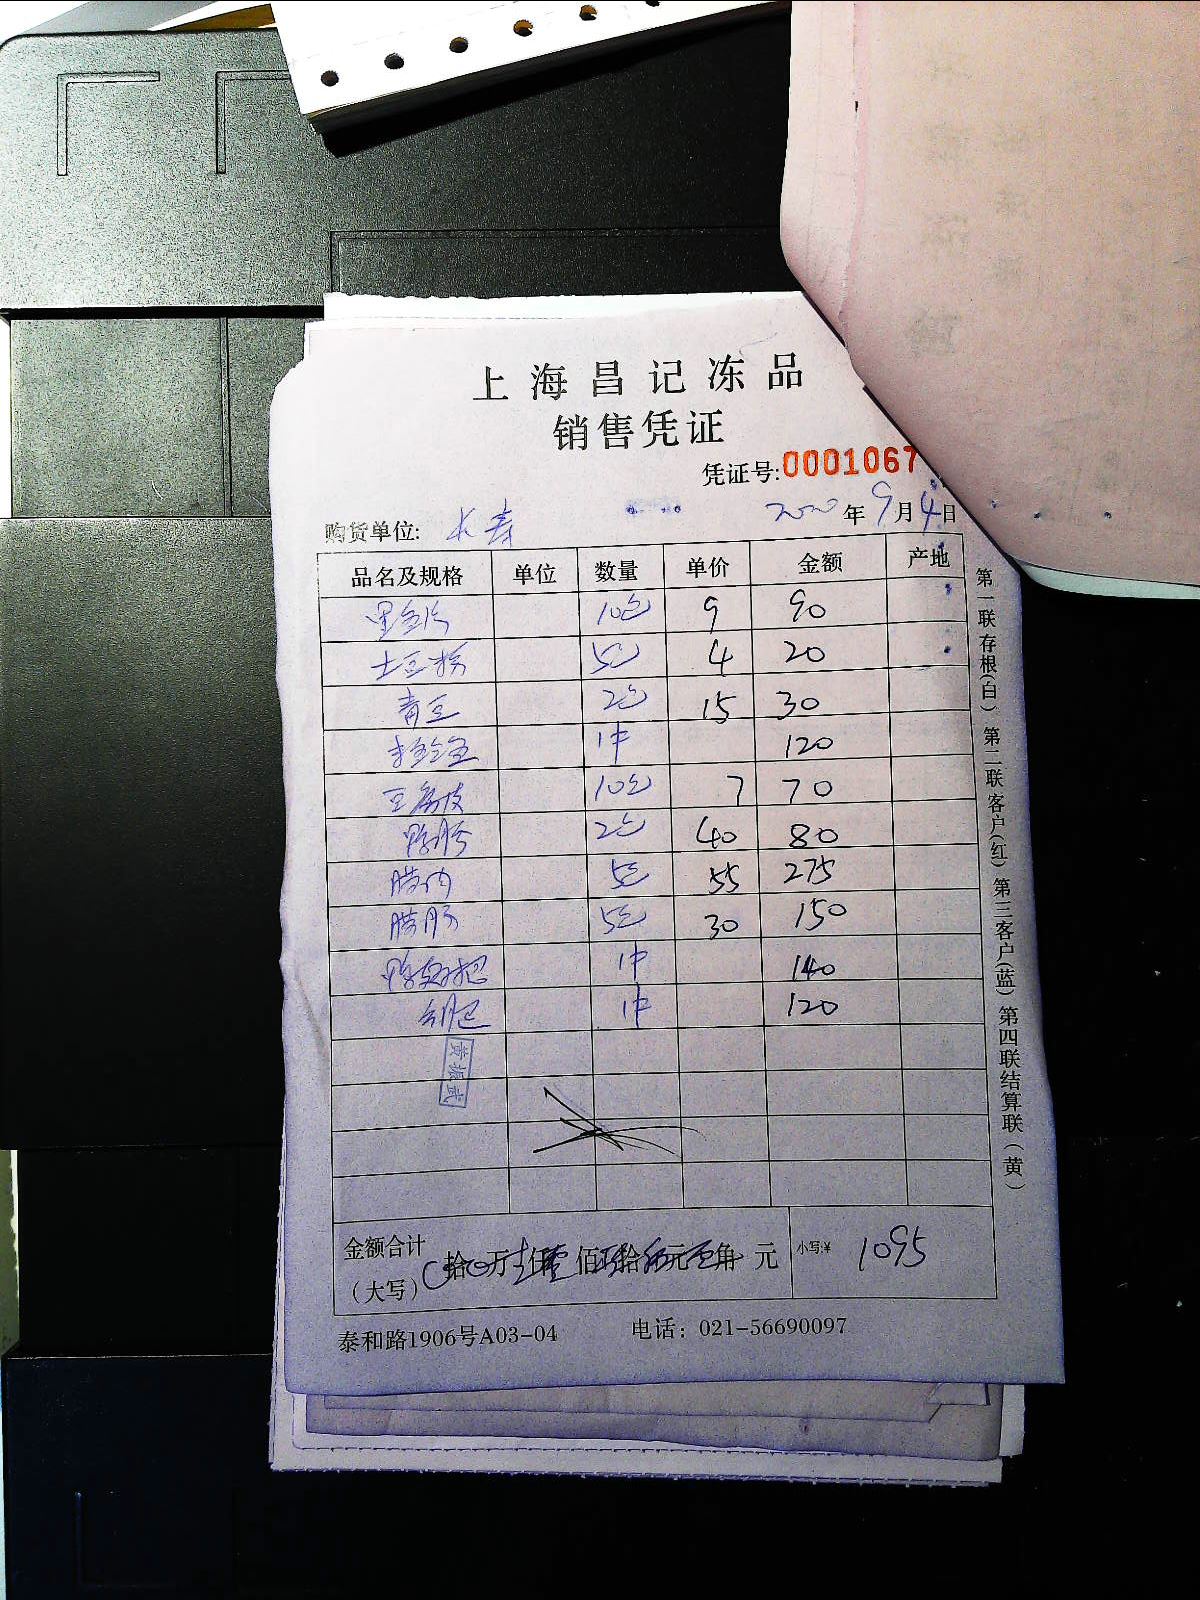 上海昌记冻品
销售凭证
凭证号:0001067
购货单位: 长寿 2020年9月4日
品名及规格 单位 数量 单价 金额 产地
黑鱼片 10包 9 90
土豆粉 5包 4 20
青豆 2包 15 30
1件 120
豆腐皮 10包 7 70
鸭肠 2包 40 80
腊肉 5包 55 275
腊肠 5包 30 150
鸭翅根 1件 140
1件 120
黄振武
金额合计 拾 万 仟 佰 拾 元 角 元 小写:¥ 1095
(大写)
泰和路1906号A03-04 电话: 021-56690097
第一联存根(白) 第二联客户(红) 第三客户(蓝) 第四联结算联(黄)